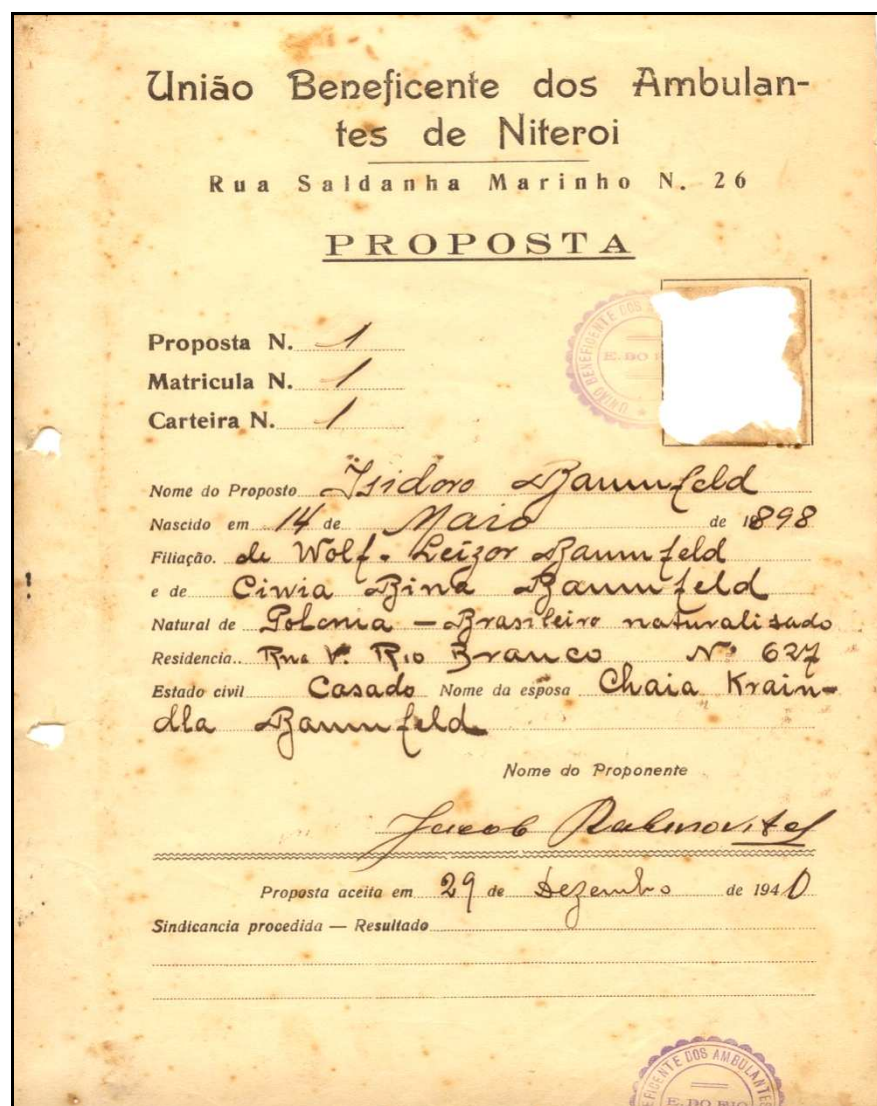 União Beneficente dos Ambulan-
tes de Niteroi
Rua Saldanha Marinho N. 26
PROPOSTA
UNIÃO BENEFICENTE DOS
E. DO
Proposta N. 1
Matricula N. 1
Carteira N. 1
Nome do Proposto Isidoro Baumfeld
Nascido em 14 de Maio de 1898
Filiação. de Wolf-Leizor Baumfeld
e de Ciwia Bina Baumfeld
Natural de Polonia - Brasileiro naturalisado
Residencia.. Rua V. Rio Branco Nº 627
Estado civil Casado Nome da esposa Chaia Krain-
dla Baumfeld
Nome do Proponente
Jacob Rabinovitch
Proposta aceita em 29 de Dezembro de 1940
Sindicancia procedida — Resultado
FICENTE DOS AMBULANTES
E. DO RIO